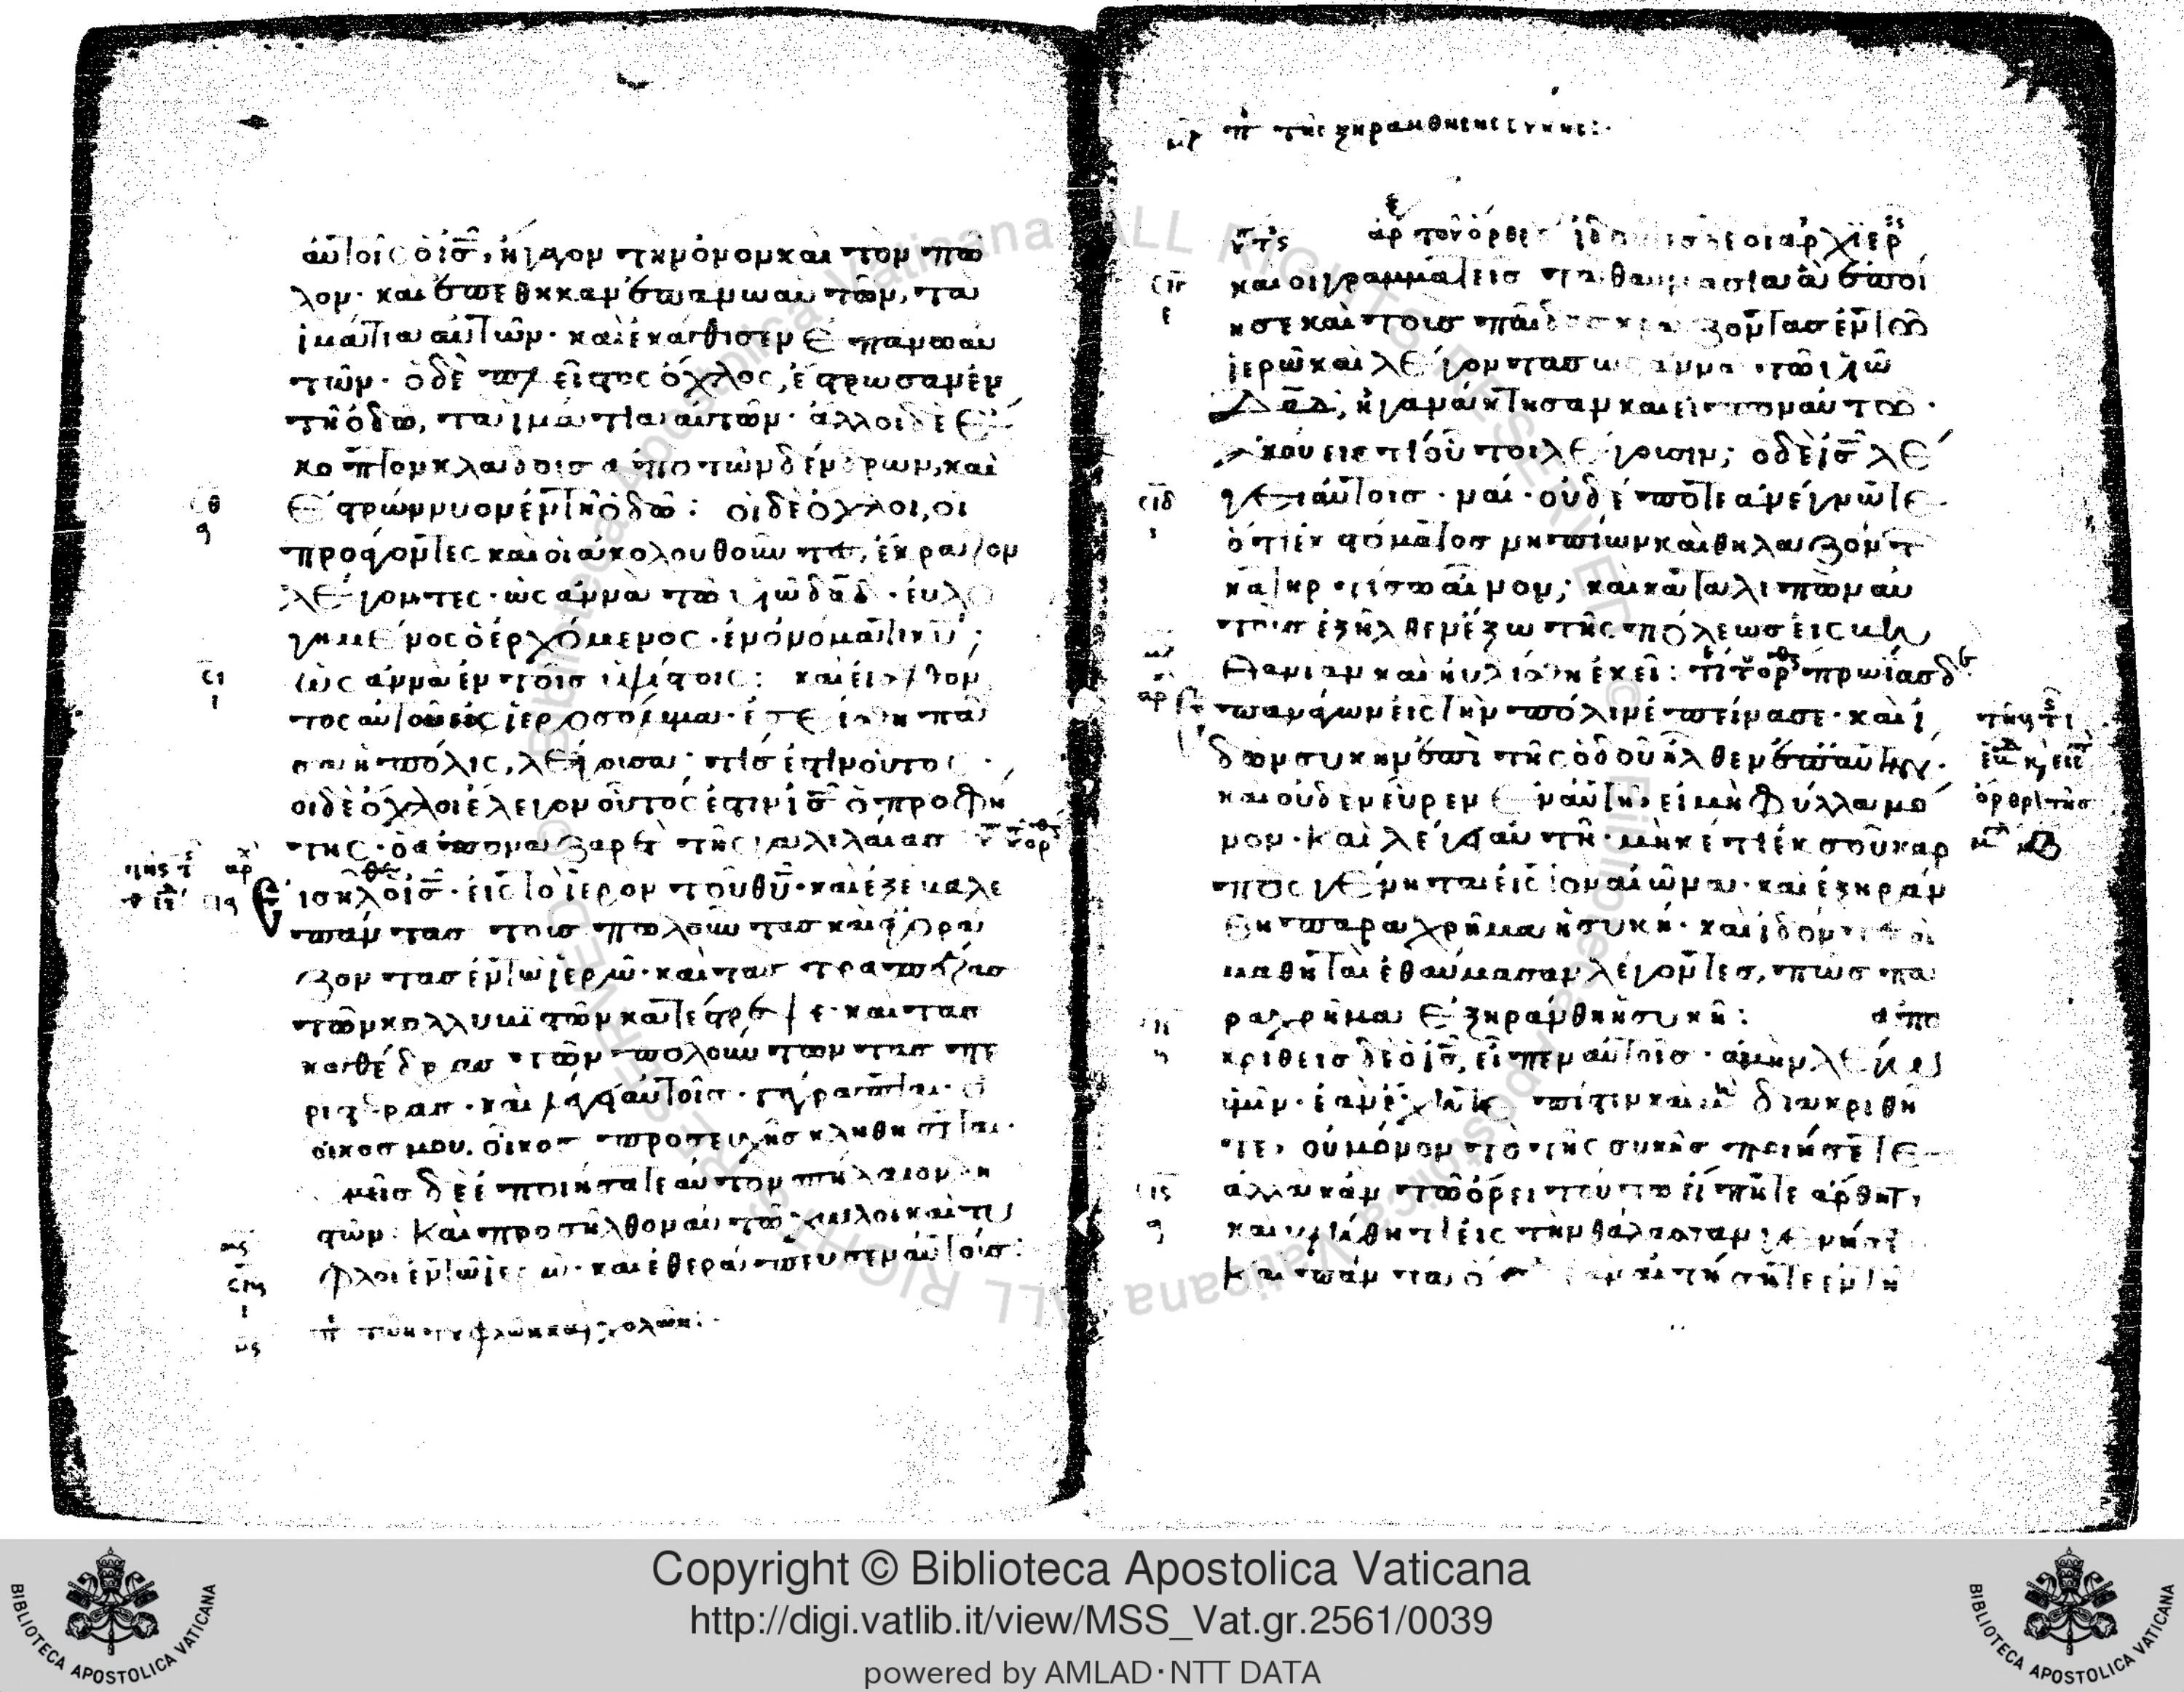 αὐτοῖς ὁ ἰς, ἤγαγον τὴν ὄνον καὶ τὸν πῶ
λον· καὶ ἐπέθηκαν ἐπάνω αὐτῶν, τὰ
ἱμάτια αὐτῶν· καὶ ἐκάθισεν ἐπάνω αὐ
τῶν· ὁ δὲ πλεῖστος ὄχλος, ἔστρωσαν ἐν
τῆ ὁδῶ, τὰ ἱμάτια αὐτῶν· ἄλλοι δὲ ἔ
κοπτον κλάδους ἀπὸ τῶν δένδρων, καὶ
ἐστρώννυον ἐν τῆ ὁδῶ: οἱ δὲ ὄχλοι, οἱ
προάγοντες καὶ οἱ ἀκολουθοῦντες, ἔκραζον
λέγοντες· ὡσαννὰ τῶ υἱῶ δαδ· εὐλο
γημένος ὁ ἐρχόμενος· ἐν ὀνόματι κυ;
ὡσαννὰ ἐν τοῖς ὑψίστοις: καὶ εἰσελθόν
τος αὐτοῦ εἰς ἱεροσόλυμα· ἐσείσθη πᾶ
σα ἡ πόλις, λέγουσα· τίς ἐστιν οὗτος·
οἱ δὲ ὄχλοι ἔλεγον οὗτός ἐστιν ἰς ὁ προφή
της· ὁ ἀπὸ ναζαρὲτ τῆς γαλιλαίας
Εἰσῆλθεν ὁ ἰς· εἰς τὸ ἱερὸν τοῦ θυ· καὶ ἐξέβαλε
πάντας τοὺς πωλοῦντας καὶ ἀγορά
ζοντας ἐν τῶ ἱερῶ· καὶ τὰς τραπέζας
τῶν κολλυβιστῶν κατέστρεψε· καὶ τὰς
καθέδρας τῶν πωλούντων τὰς πε
ριστεράς· καὶ λέγει αὐτοῖς· γέγραπται· ὁ
οἶκος μου, οἶκος προσευχῆς κληθήσεται·
μεῖς δὲ ἐποιήσατε αὐτὸν σπήλαιον λη
στῶν· Καὶ προσῆλθον αὐτῶ χωλοὶ καὶ τυ
φλοὶ ἐν τῶ ἱερῶ· καὶ ἐθεράπευσεν αὐτούς:
π τῶν τυφλῶν καὶ χωλῶν:
π τῆς ξηρανθήσης συκῆς:
ἰδόντες δὲ οἱ ἀρχιερ
καὶ οἱ γραμματεῖς τὰ θαυμάσια ἃ ἐποί
ησε καὶ τοὺς παῖδας κράζοντας ἐν τῶ
ἱερῶ καὶ λέγοντας ὡσαννὰ τῶ υἱῶ
Δαδ, ἠγανάκτησαν καὶ εἶπον αὐτῶ·
ἀκούεις τί οὗτοι λέγουσιν; ὁ δὲ ἰς λέ
γει αὐτοῖς· ναί· οὐδέποτε ἀνέγνωτε
ὅτι ἐκ στόματος νηπίων καὶ θηλαζόντ
κατηρτίσω αἶνον; καὶ καταλιπὼν αὐ
τοὺς ἐξῆλθεν ἔξω τῆς πόλεως εἰς βη
θανίαν καὶ ηὐλίσθη ἐκεῖ: πρωΐας δὲ
ἐπανάγων εἰς τὴν πόλιν ἐπείνασε· καὶ ἰ
δὼν συκῆν ἐπὶ τῆς ὁδοῦ ἦλθεν ἐπ αὐτήν·
καὶ οὐδὲν εὗρεν ἐν αὐτῆ εἰ μὴ φύλλα μό
νον· Καὶ λέγει αὐτῆ· μηκέτι ἐκ σοῦ καρ
πὸς γένηται εἰς τὸν αἰῶνα· καὶ ἐξηράν
θη παραχρῆμα ἡ συκῆ· καὶ ἰδόντες οἱ
μαθηταὶ ἐθαύμασαν λέγοντες, πῶς πα
ραχρῆμα ἐξηράνθη ἡ συκῆ: ἀπο
κριθεὶς δὲ ὁ ἰς, εἶπεν αὐτοῖς· ἀμὴν λέγω
ὑμῖν· ἐὰν ἔχητε πίστιν καὶ μὴ διακριθῆ
τε, οὐ μόνον τὸ τῆς συκῆς ποιήσετε
ἀλλὰ κἂν τῶ ὄρει τούτω εἴπητε ἄρθητι
καὶ βλήθητι εἰς τὴν θάλασσαν γενήσε
Καὶ πάντα ὅσα ἐὰν αἰτήσητε ἐν τῆ
Copyright © Biblioteca Apostolica Vaticana
http://digi.vatlib.it/view/MSS_Vat.gr.2561/0039
powered by AMLAD·NTT DATA
BIBLIOTECA APOSTOLICA VATICANA
BIBLIOTECA APOSTOLICA VATICANA